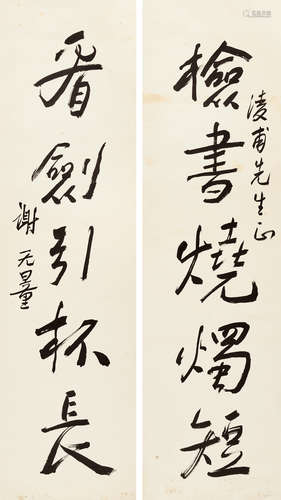 檢書燒燭短
凌甫先生正
看劍引杯長
謝无量